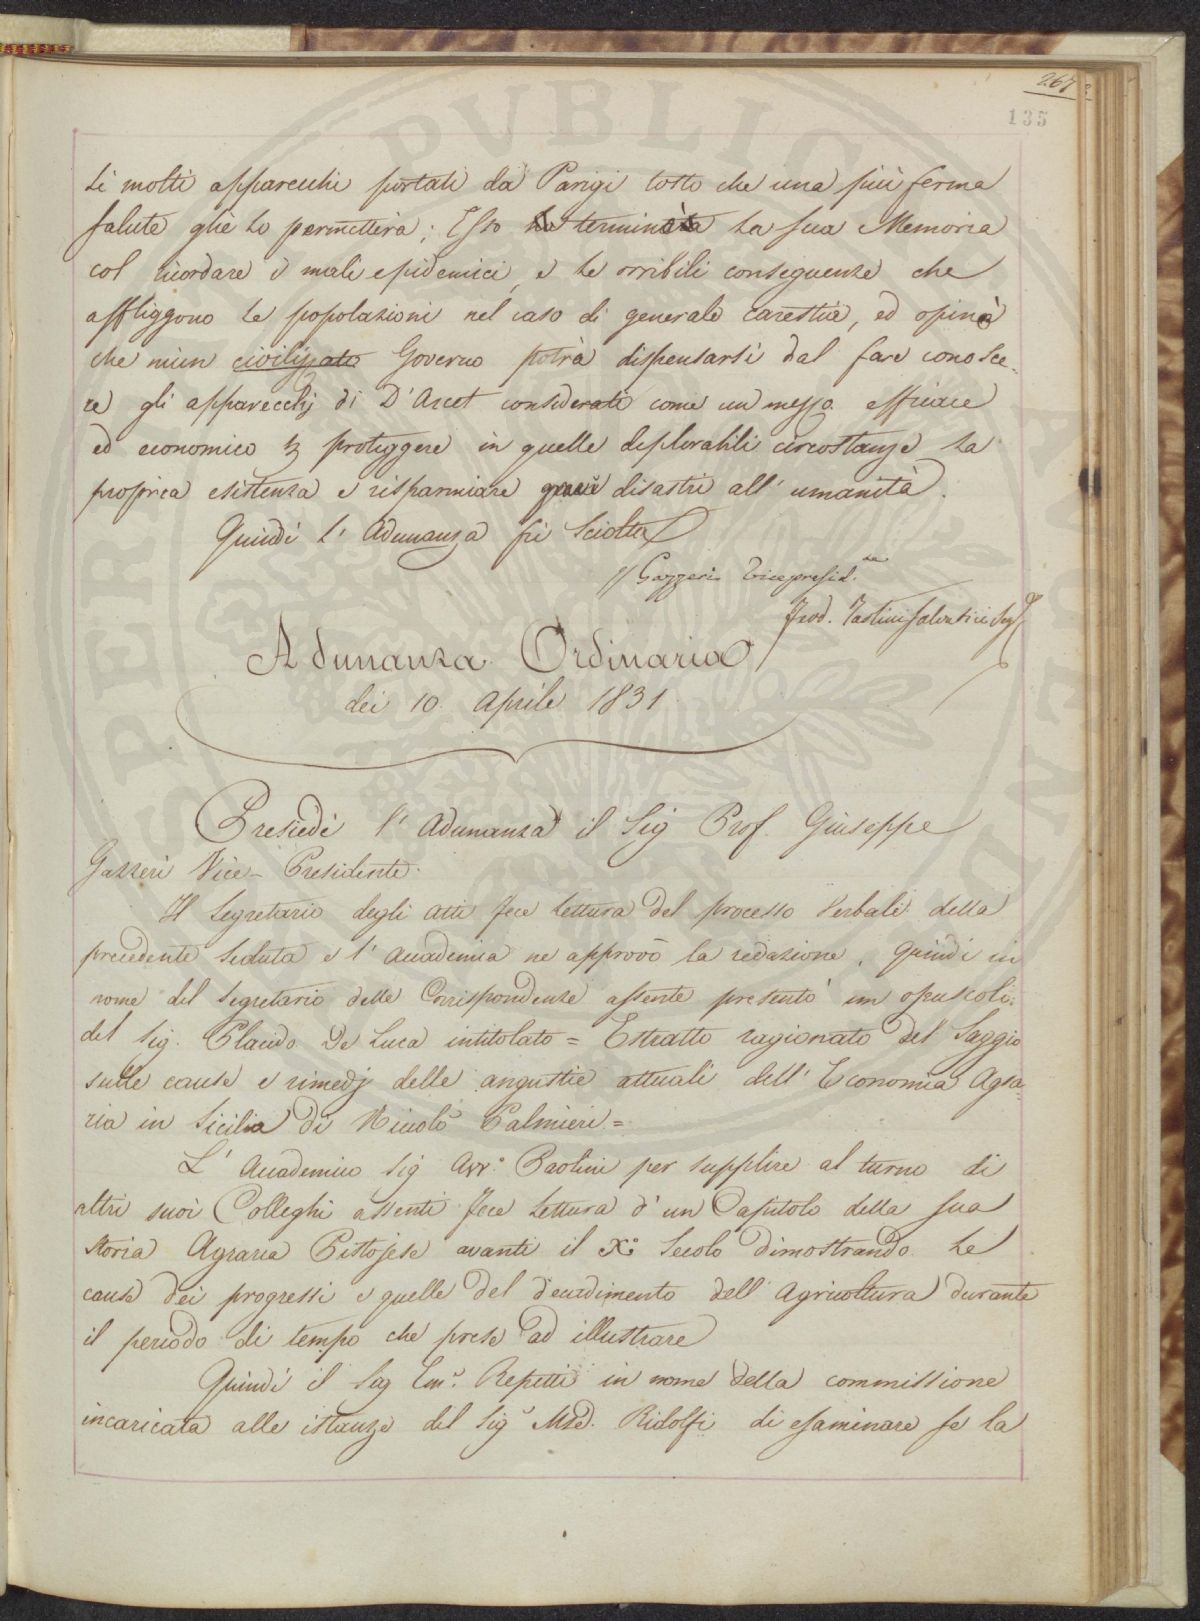 267
135
ti molti apparecchi portati da Parigi tosto che una più ferma
salute gliè lo permetterà; Esso terminò la sua Memoria
col ricordare i mali epidemici, e le orribili conseguenze che
affliggono le popolazioni nel caso di generale carestia, ed opinò
che niun civilizzato Governo potrà dispensarsi dal fare conosce-
re gli apparecchj di D'Arcet considerati come un mezzo efficace
ed economico proteggere in quelle deplorabili circostanze la
propria esistenza e risparmiare gravi disastri all'umanità.
Quindi l'Adunanza fù sciolta
G Gazzeri Vicepresid.te
Tartini Salvatici
Adunanza Ordinaria
dei 10. Aprile 1831.
Presiedè l'Adunanza il Sig Prof. Giuseppe
Gazzeri Vice-Presidente.
Il Segretario degli Atti fece lettura del processo Verbale della
precedente Seduta e l'Accademia ne approvò la redazione, quindi in
nome del Segretario delle Corrispondenze assente presentò un opuscolo
del Sig. Placido De Luca intitolato = Estratto ragionato del Saggio
sulle cause e rimedj delle angustie attuali dell'Economia Agra-
ria in Sicilia di Nicolò Palmieri =
L'Accademico Sig Avv.o Paolini per supplire al turno di
altri suoi Colleghi assenti fece lettura d'un Capitolo della sua
Storia Agraria Pistojese avanti il X.o Secolo dimostrando le
cause dei progressi e quelle del decadimento dell'Agricoltura durante
il periodo di tempo che prese ad illustrare
Quindi il Sig Em.e Repetti in nome della commissione
incaricata alle istanze del Sig.r Mse. Ridolfi di esaminare se la